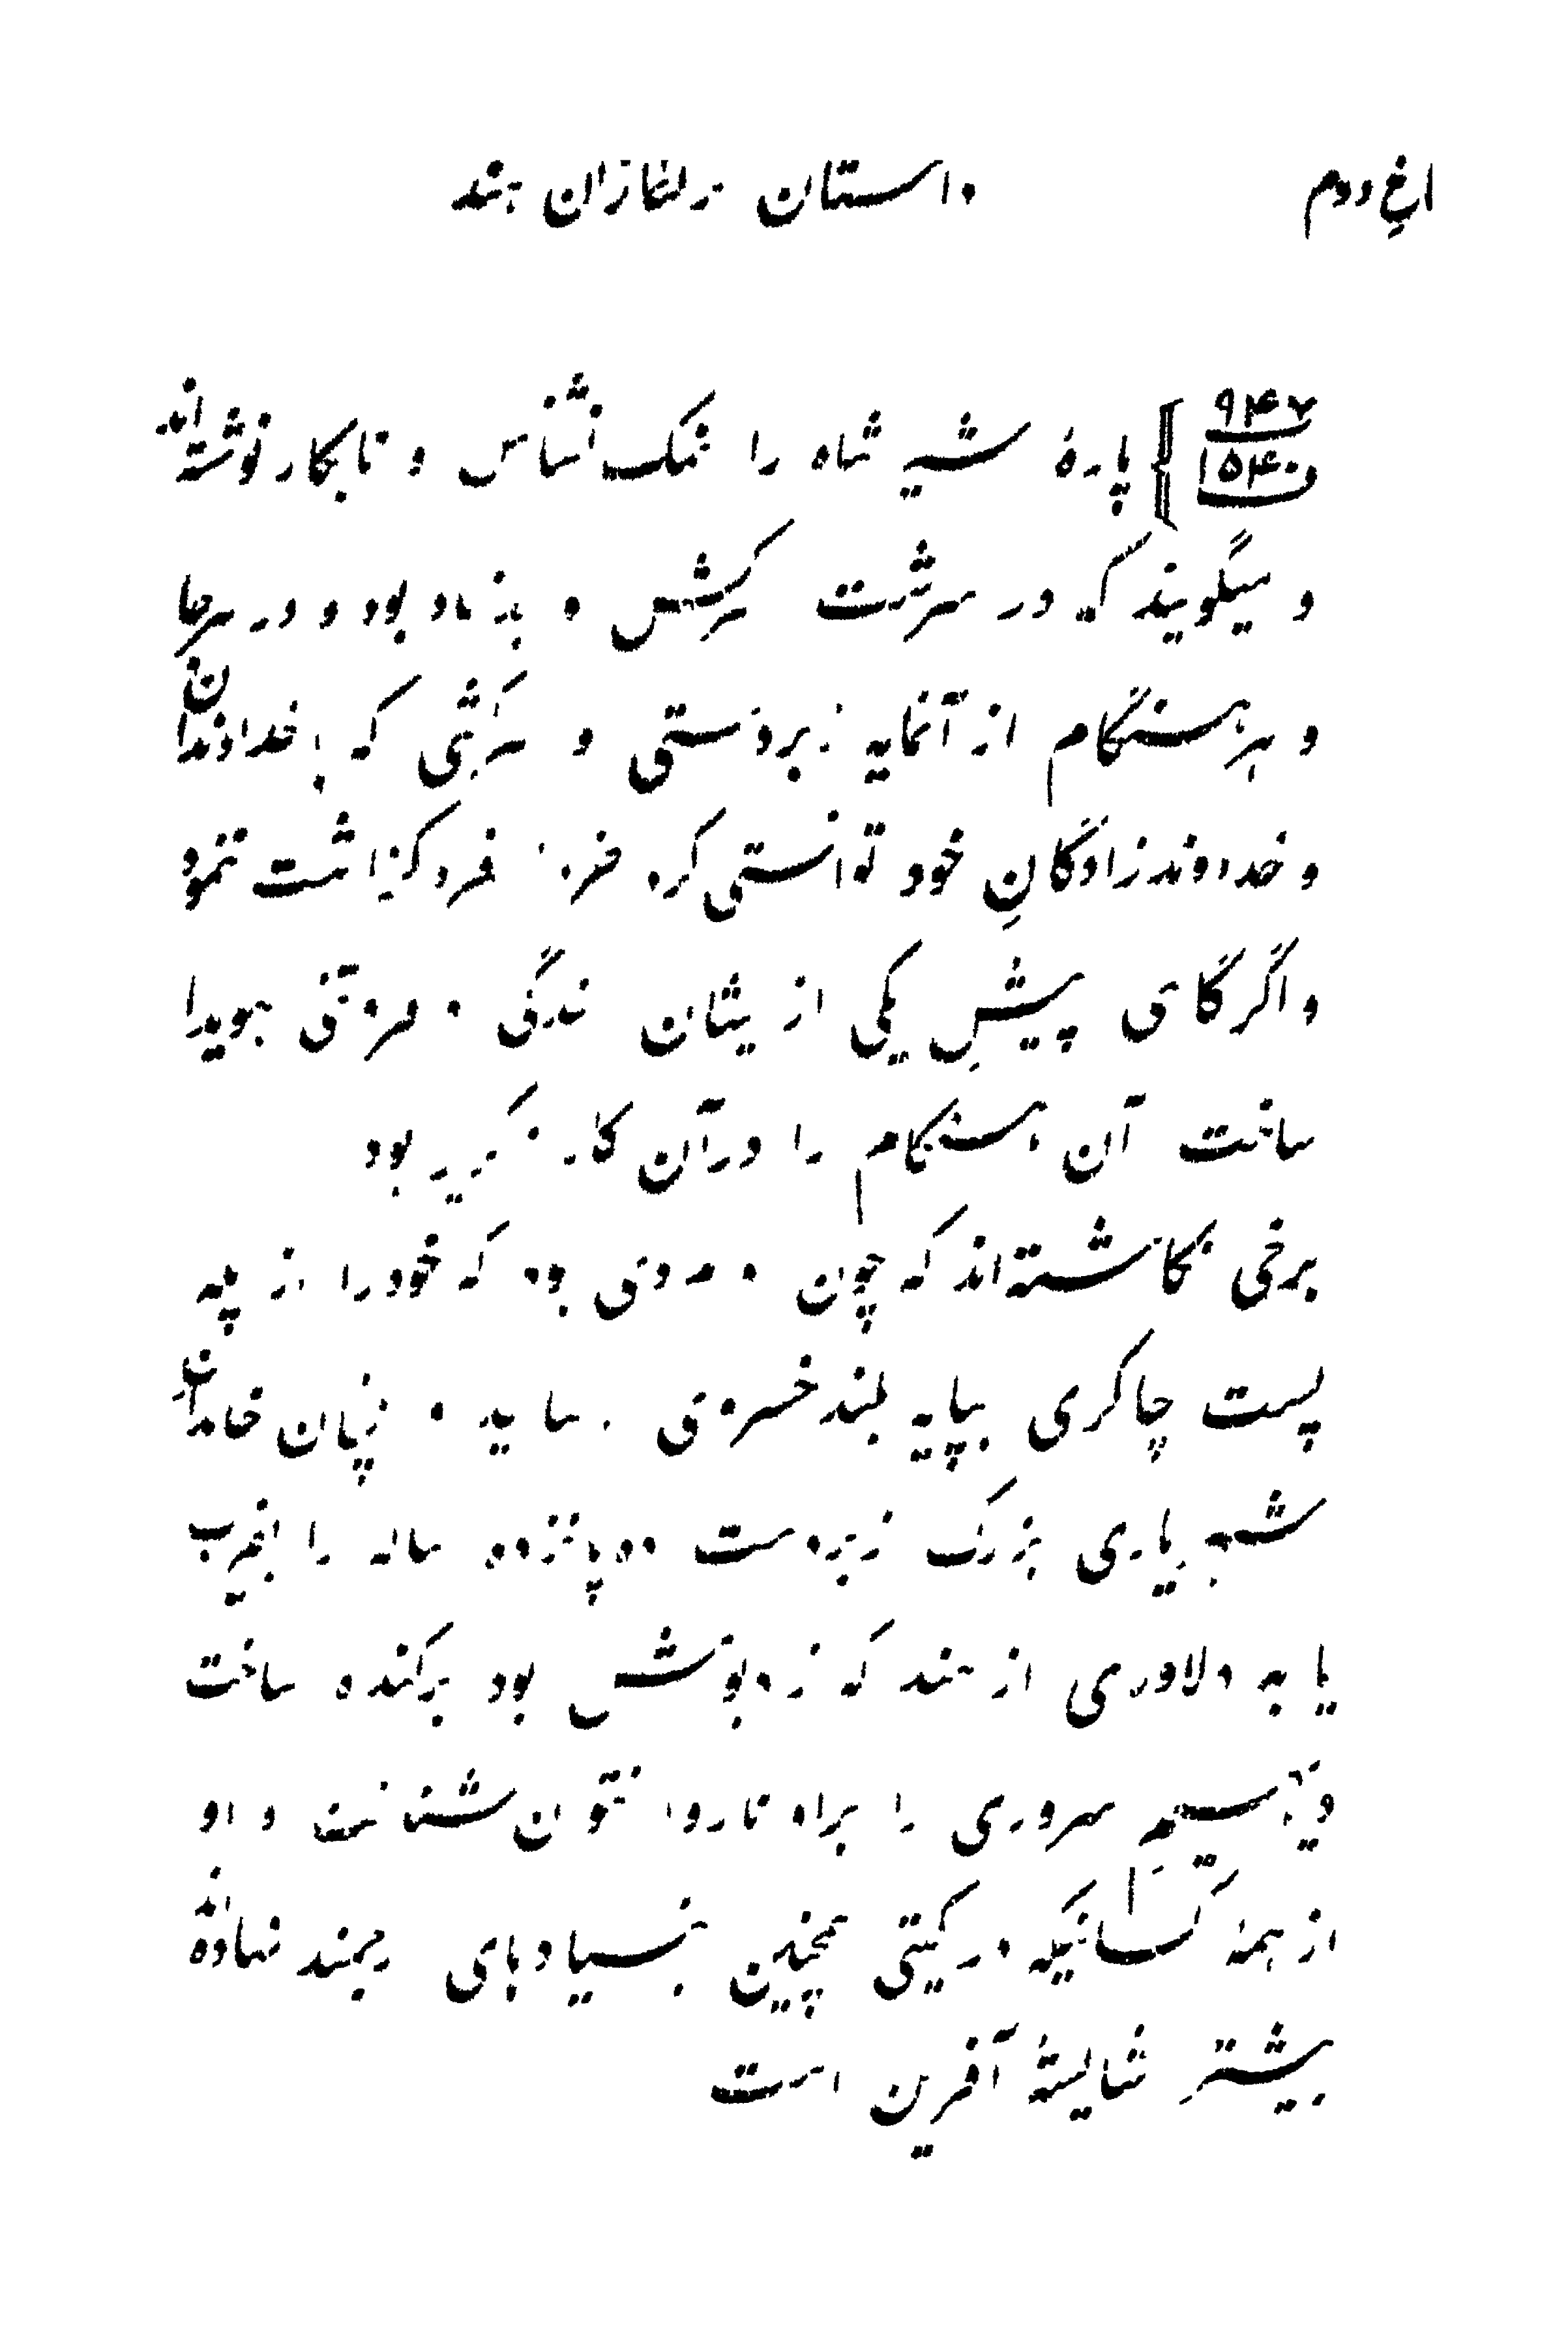 داستان ترکتازان هند
ارغ دوم
۹۴۷
۱۵۴۰
پارهٔ شیر شاه را نمک نشناس و نابکار نوشته‌اند
و میگویند که در سرشت سرکش و بدنهاد بود و در هرجا
و هر هنگام از آنمایه زبردستی و سرکشی که با خداوندان
و خداوندزادگانِ خود توانستی کرد هرگز فروگزاشت ننمود
و اگر گاهی پیشِ یکی از یشان بندگی و فروتنی هویدا
ساخت آن هنگام را در آن کار ناگزیر بود
برخی نگاشته‌اند که چون او مردی بود که خود را از پله
پست چاکری بپایه بلند خسروی رسانید و چنان خاندان
شهریاری بزرگ زبردست ده پانزده ساله را بفریب
یا به دلاوری از هند که زادبومش بود برکنده ساخت
دیهیم سروری را براه ناروا نتوان شناخت و او
از همهٔ کسانیکه در گیتی همچنین بنیادهای ریمند نهاده‌اند
بیشتر شایستهٔ آفرین است